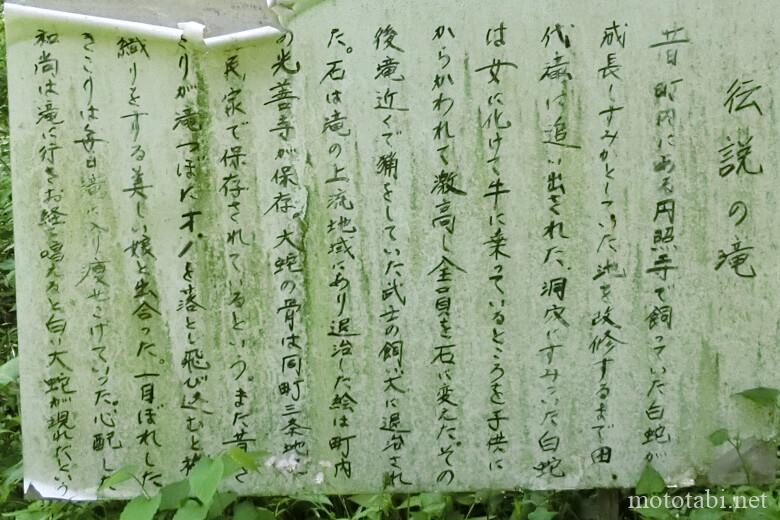 伝説の滝
昔町内にある円照寺で飼っていた白蛇が
成長しすみかとしていた池を改修するまで田
代滝に追い出された。洞穴にすみついた白蛇
は女に化けて牛に乗っているところを子供に
からかわれて激高し全員を石に変えた。その
後滝近くで猟をしていた武士の飼い犬に退治され
た。石は滝の上流地域にあり退治した絵は町内
の光善寺が保存、大蛇の骨は同町三条地
民家で保存されているという。また昔き
こりが滝つぼにオノを落とし飛び込むと機
織りをする美しい娘と出会った。一目ぼれした
きこりは毎日滝に入り痩せこけていった。心配し
和尚は滝に行きお経を唱えると白い大蛇が現れたという
mototabi.net